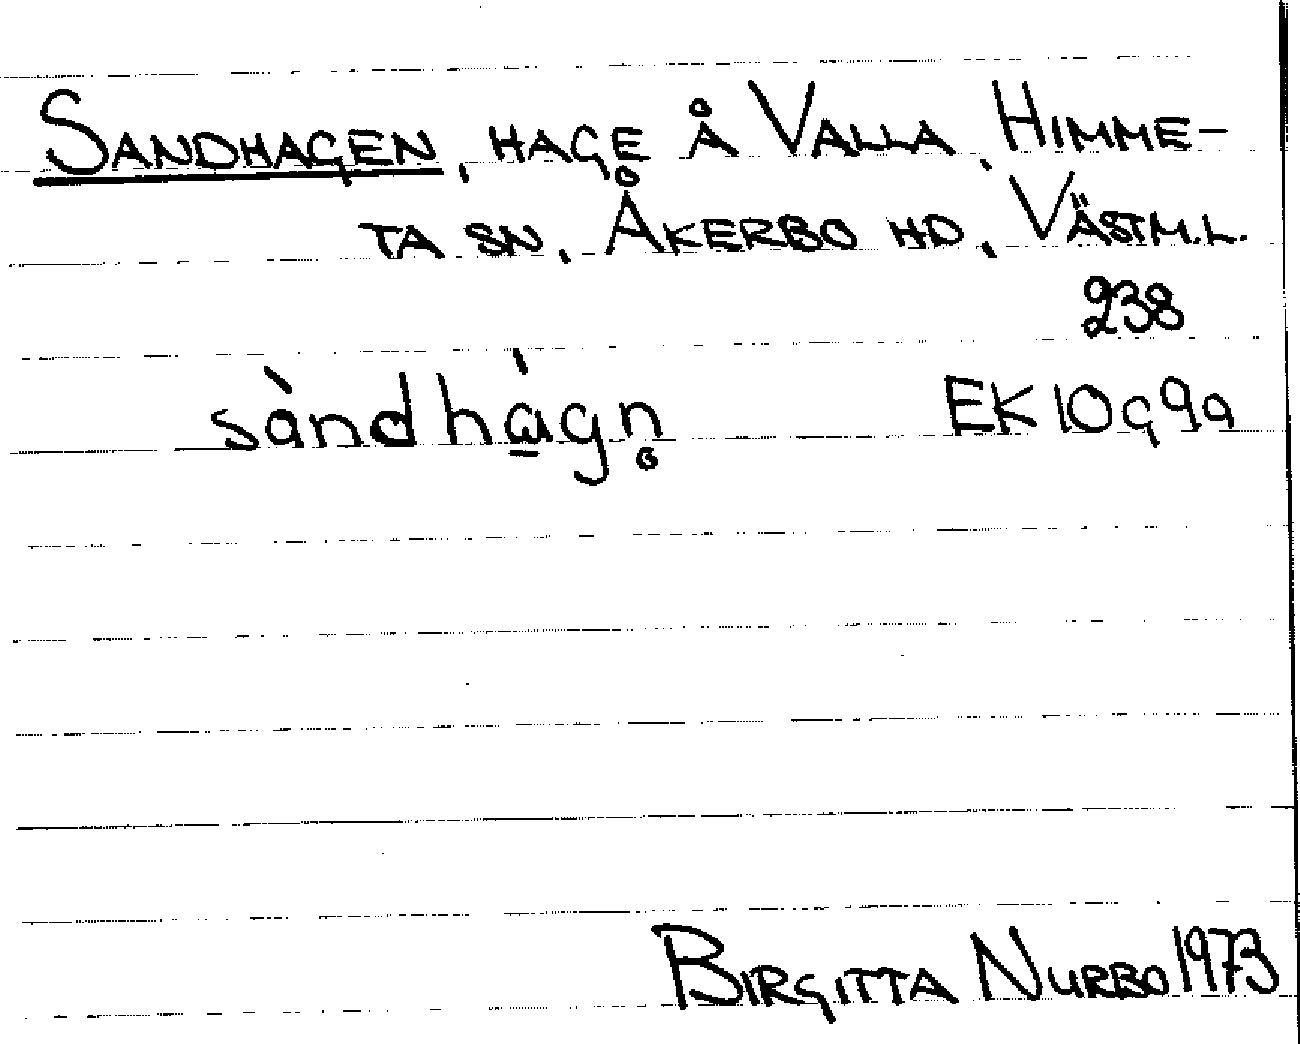 SANDHAGEN, HAGE Å VALLA, HIMME-
TA SN, ÅKERBO HD, VÄSTM.L.
238
sàndha̱̍gn̥ EK 10g9a
BIRGITTA NURBO 1973